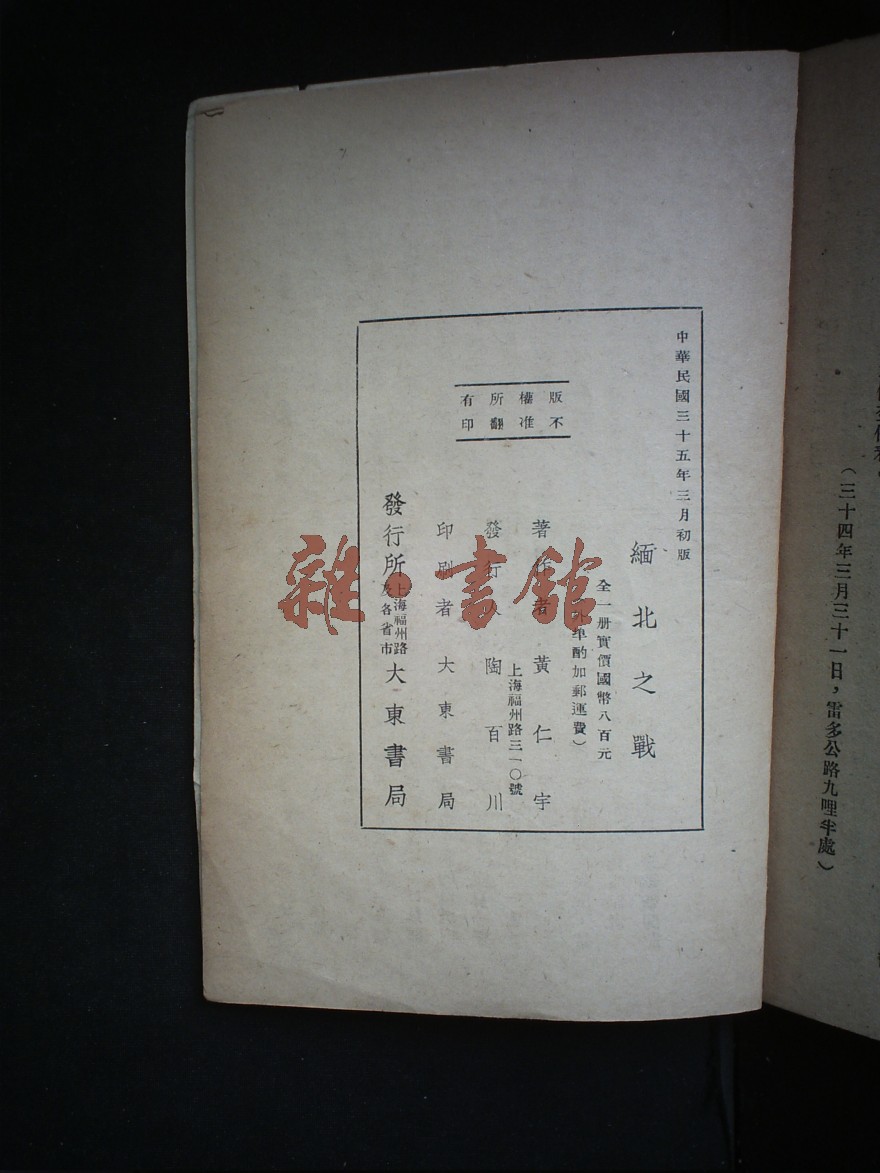 （三十四年三月三十一日，雷多公路九哩半處）
中華民國三十五年三月初版
緬北之戰
全一册實價國幣八百元
埠酌加郵運費）
著作者 黃仁宇
上海福州路三一〇號
發行 陶百川
印刷者 大東書局
發行所 上海福州路及各省市 大東書局
版權所有
不准翻印
雜·書館